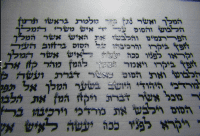 המלך ואשר נתן כתר מלכות בראשו ונתון
הלבוש והסוס על יד איש משרי המלך
הפרתמים והלבישו את האיש אשר המלך
חפץ ביקרו והרכיבהו על הסוס ברחוב העיר
וקראו לפניו ככה יעשה לאיש אשר המלך
חפץ ביקרו ויאמר המלך להמן מהר קח את
הלבוש ואת הסוס כאשר דברת ועשה כן
למרדכי היהודי היושב בשער המלך אל תפל
דבר מכל אשר דברת ויקח המן את הלבוש
ואת הסוס וילבש את מרדכי וירכיבהו ברחוב
העיר ויקרא לפניו ככה יעשה לאיש אשר